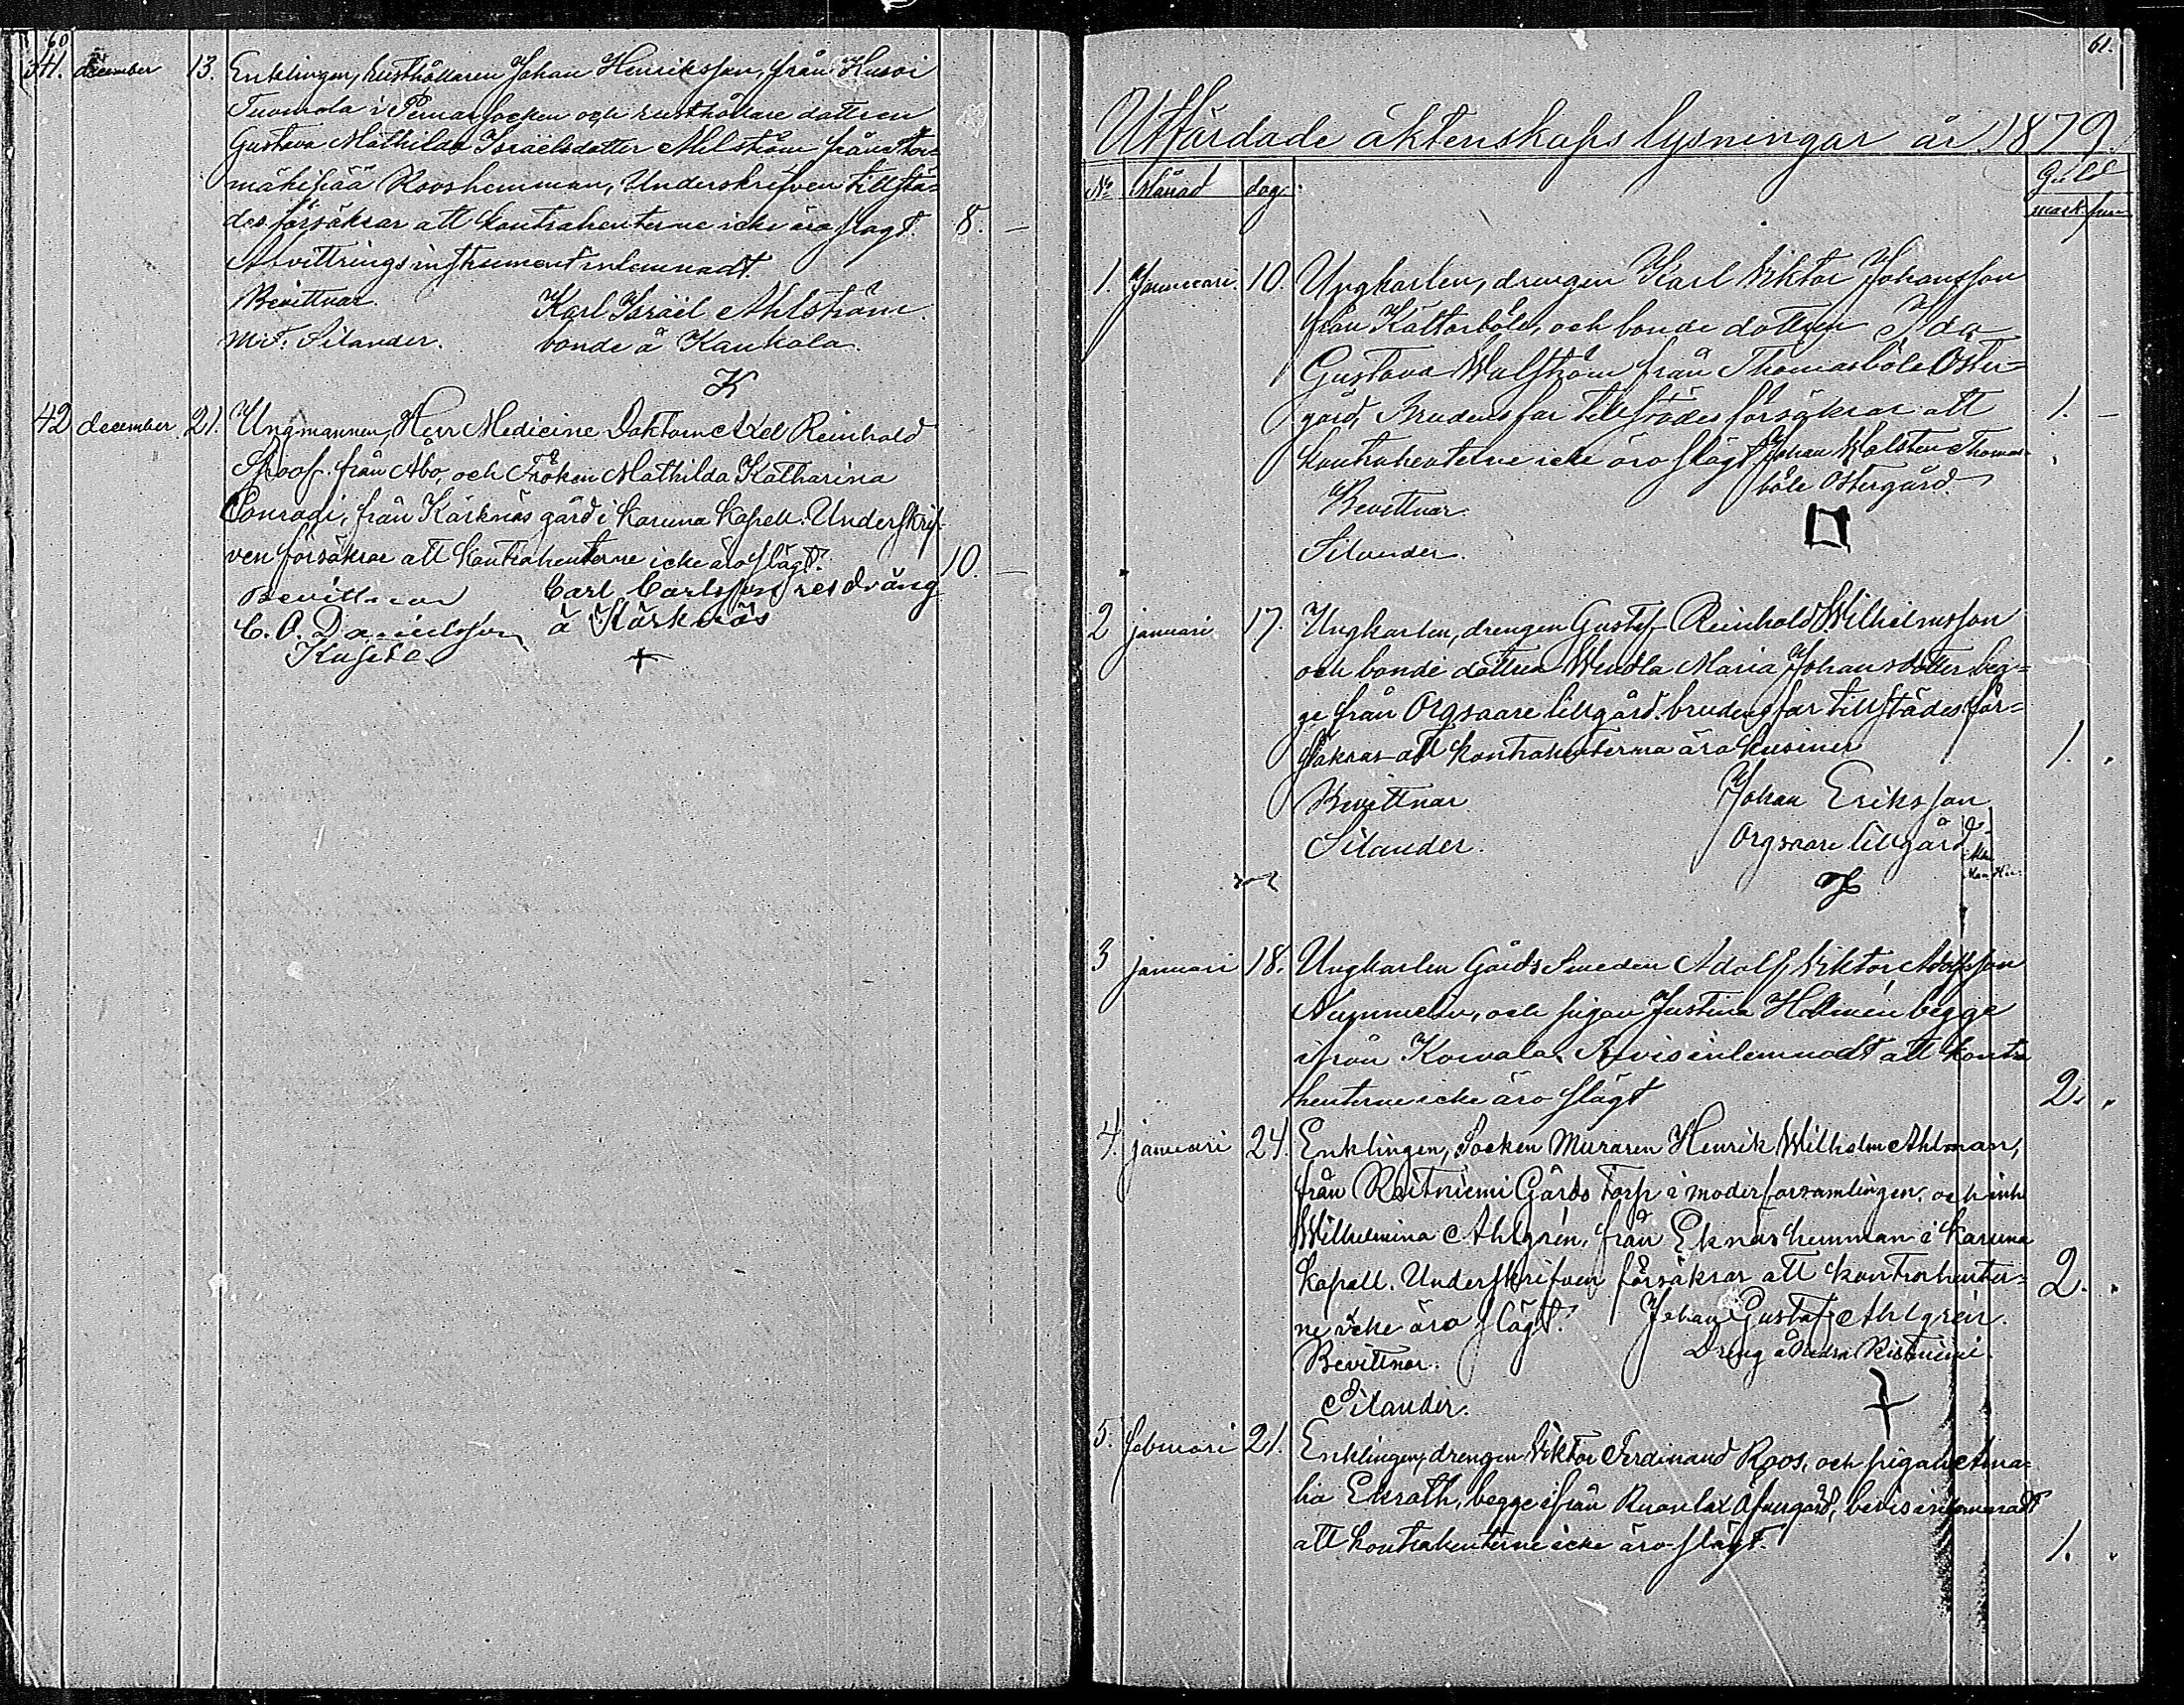 60
41. december 13. Enklingen, Rusthållaren Johan Henriksson, från Husoi
Tuomola i Pemar socken och rusthållare dottren
Gustava Mathilda Israelsdotter Ahlström från
mähipää Rooshemman, Underskrifven tillstä=
des försäkrar att kontrahenterne icke äro slägt. 8. –
Afvittringsinstrument inlemnadt.
Bevittnar Karl Israel Ahlström
Silander. bonde å Kaukola
K
42 december 21. Ungmannen, Herr Medicine Doktorn Axel Reinhold
Spoof från Åbo, och Fröken Mathilda Katharina
Conradi, från Karknäs gård i Karuna Kapell. Underskrif-
ven försäkrar att kontrahenterne icke äro slägt. 10. –
Bevittnar Carl Carlsson resdräng
C. O. Danielsson å Karknäs
+
61.
Utfärdade äktenskaps lysningar år 1879.
No Månad dag. Guld
mark
1. Januari. 10. Ungkarlen, drengen Karl Viktor Johansson
från Kättarböle, och bonde dottren Ida
Gustava Walström från Thomasböle Öster=
gård, Brudens far tillstädes försäkrar att 1. –
kontrahenterne icke äro slägt Johan Walsten Thomas-
böle Östergård
Bevittnar
Silander.
2 januari 17. Ungkarlen, drengen Gustaf Reinhold Wilhelmsson
och bonde dottren Wendla Maria Johansdotter beg=
ge från Orgsaare lillgård. brudens far tillstädes för=
säkrar att kontrahenterna äro kusiner 1. "
Bevittnar Johan Eriksson
Silander. Orgsaare lillgård
3 januari 18. Ungkarlen Gårds Smeden Adolf Viktor Adolfsson
Nummelin, och pigan Justina Hollmén begge
ifrån Kowala, Bevis inlemnadt att kontra
henterne icke äro slägt 2. "
4. januari 24. Enklingen, Socken Muraren Henrik Wilhelm Ahlman,
från Reitniemi Gårds Torp i moderforsamlingen. och inh
Wilhelmina Ahlgrén, från Eknäs hemman i Karuna
Kapell. Underskrifven försäkrar att kontrahenter= 2. "
ne icke äro slägt. Johan Gustaf Ahlgrén.
Bevittnar. Dreng å Ristniemi.
Silander. +
5. februari 21. Enklingen, drengen Viktor Ferdinand Roos, och pigan Ama=
lia Ekroth, begge ifrån Ruonlax Öfvergård, bevis inlemnadt
att kontrahenterne icke äro slägt. 1. "